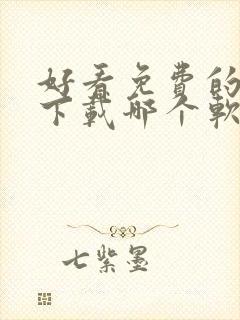 好看免费的
下载哪个软
七紫墨